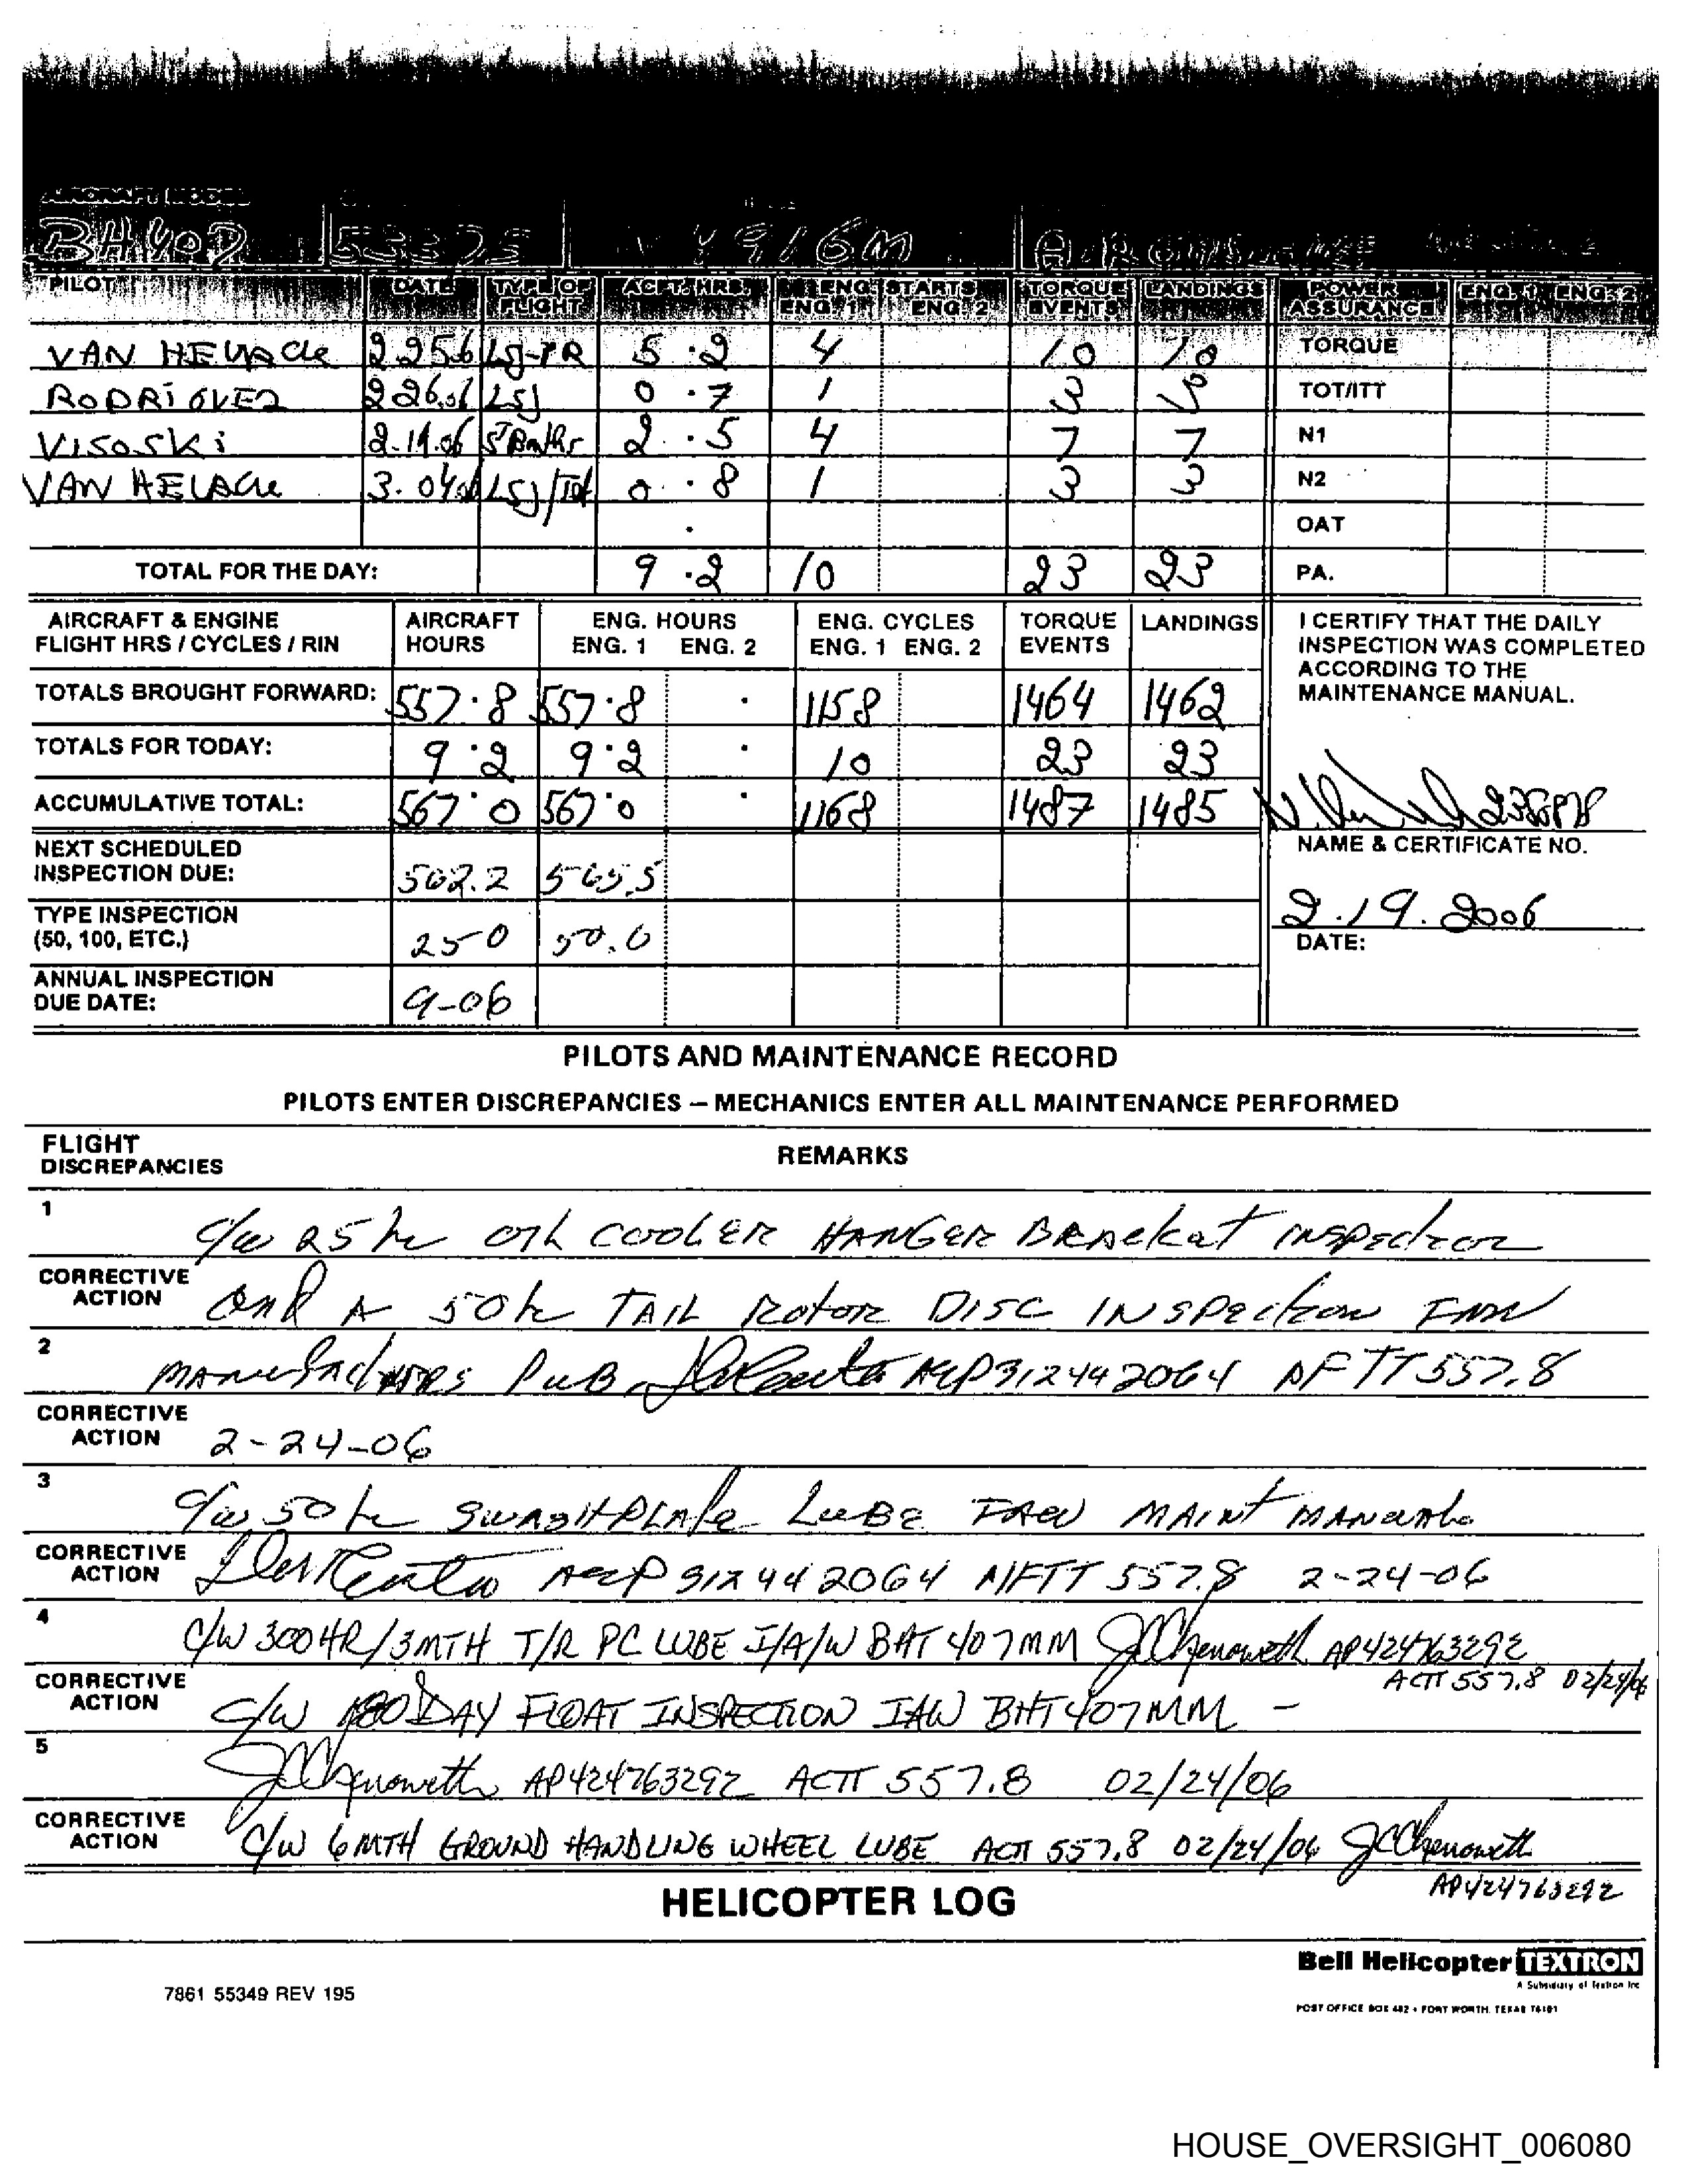 AIRCRAFT MODEL
916M
PILOT DATE TYPE OF FLIGHT ACFT. HRS. ENG STARTS ENG. 1 ENG. 2 TORQUE EVENTS LANDINGS POWER ASSURANCE ENG. 1 ENG. 2
VAN 5.2 4 10 10 TORQUE
RODRIGUEZ LSJ 0.7 1 3 TOT/ITT
VISOSKI 2.19.06 2.5 4 7 7 N1
VAN LSJ 0.8 1 3 3 N2
. OAT
TOTAL FOR THE DAY: 9.2 10 23 23 PA.
AIRCRAFT & ENGINE FLIGHT HRS / CYCLES / RIN AIRCRAFT HOURS ENG. HOURS ENG. 1 ENG. 2 ENG. CYCLES ENG. 1 ENG. 2 TORQUE EVENTS LANDINGS
I CERTIFY THAT THE DAILY
INSPECTION WAS COMPLETED
ACCORDING TO THE
MAINTENANCE MANUAL.
TOTALS BROUGHT FORWARD: 557.8 557.8 . 1158 1464 1462
TOTALS FOR TODAY: 9.2 9.2 . 10 23 23
ACCUMULATIVE TOTAL: 567.0 567.0 . 1168 1487 1485
NAME & CERTIFICATE NO.
NEXT SCHEDULED
INSPECTION DUE: 562.2 565.5
2.19.2006
DATE:
TYPE INSPECTION
(50, 100, ETC.) 250 50.0
ANNUAL INSPECTION
DUE DATE: 9-06
PILOTS AND MAINTENANCE RECORD
PILOTS ENTER DISCREPANCIES – MECHANICS ENTER ALL MAINTENANCE PERFORMED
FLIGHT
DISCREPANCIES REMARKS
1 C/W 25 hr OIL COOLER HANGER BRACKET INSPECTION
CORRECTIVE ACTION and A 50 hr TAIL ROTOR DISC INSPECTION IAW
2 MANUFACTURERS PUB. A&P 312442064 AFTT 557.8
CORRECTIVE ACTION 2-24-06
3 C/W 50 hr SWASHPLATE LUBE IAW MAINT MANUAL
CORRECTIVE ACTION A&P 312442064 AFTT 557.8 2-24-06
4 C/W 300HR/3MTH T/R PC LUBE I/A/W BHT 407MM JCChenoweth AP424763292
ACTT 557.8 02/24/06
CORRECTIVE ACTION C/W 180 DAY FLOAT INSPECTION IAW BHT 407MM –
5 JCChenoweth AP424763292 ACTT 557.8 02/24/06
CORRECTIVE ACTION C/W 6MTH GROUND HANDLING WHEEL LUBE ACTT 557.8 02/24/06 JCChenoweth
AP424763292
HELICOPTER LOG
Bell Helicopter TEXTRON
A Subsidiary of Textron Inc
7861 55349 REV 195
POST OFFICE BOX 482 • FORT WORTH, TEXAS 76101
HOUSE_OVERSIGHT_006080